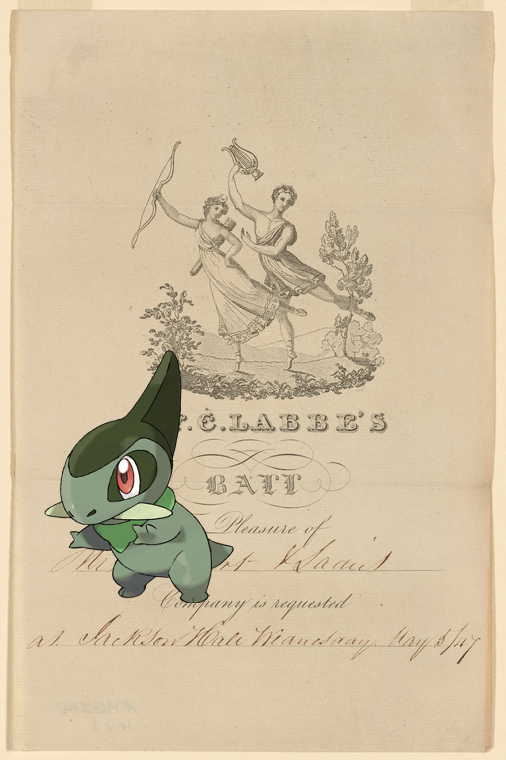 .C.LABBE'S
BALL
Pleasure of
& Ladies
Company is requested
at Jackson Hall Wednesday May 5/47